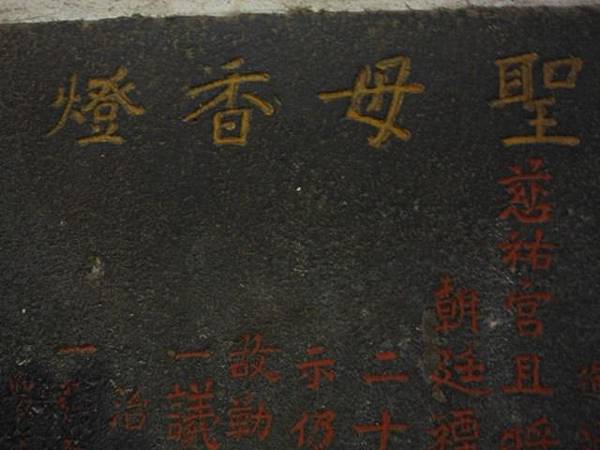 聖母香燈
慈祐宮且
朝廷禋
二十
示仍
故勒
一議
治
一